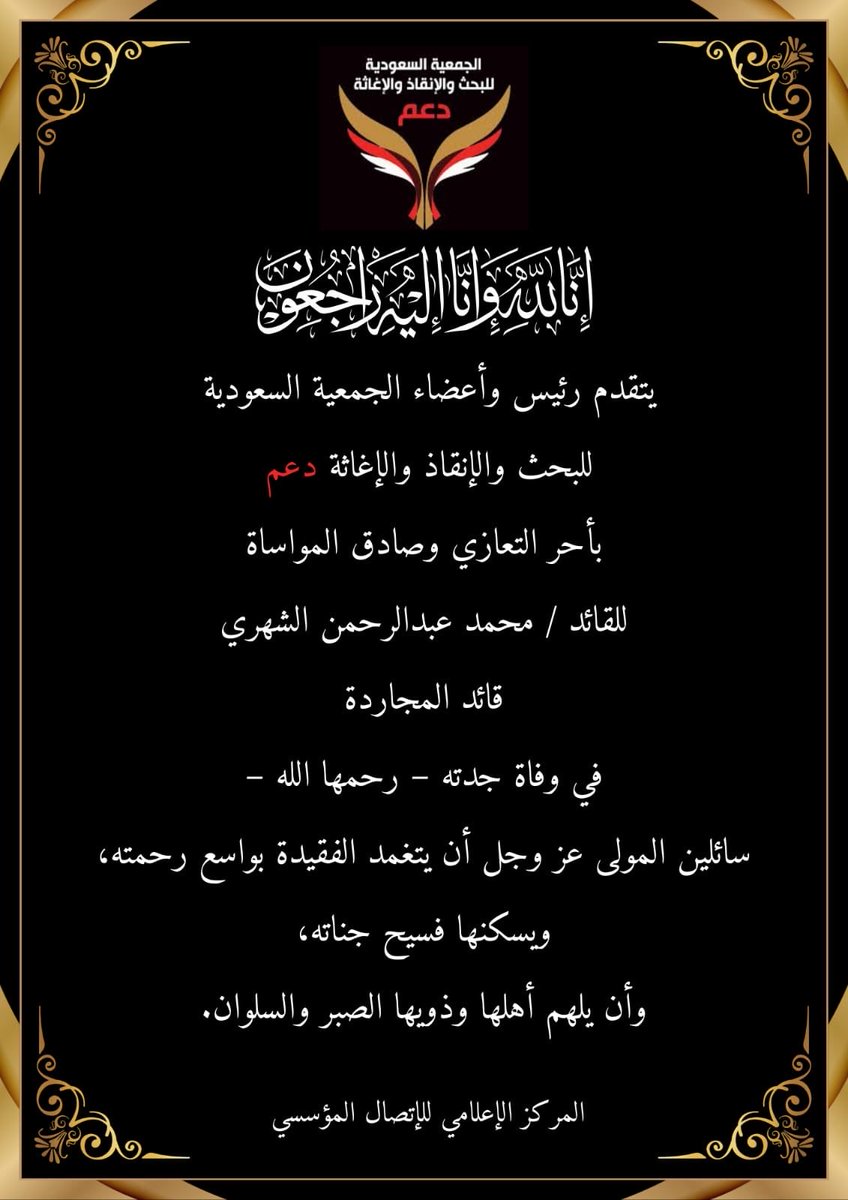 الجمعية السعودية
للبحث والإنقاذ والإغاثة
دعم
إِنَّا لِلَّهِ وَإِنَّا إِلَيْهِ رَاجِعُونَ
يتقدم رئيس وأعضاء الجمعية السعودية
للبحث والإنقاذ والإغاثة دعم
بأحر التعازي وصادق المواساة
للقائد / محمد عبدالرحمن الشهري
قائد المجاردة
في وفاة جدته – رحمها الله –
سائلين المولى عز وجل أن يتغمد الفقيدة بواسع رحمته،
ويسكنها فسيح جناته،
وأن يلهم أهلها وذويها الصبر والسلوان.
المركز الإعلامي للإتصال المؤسسي